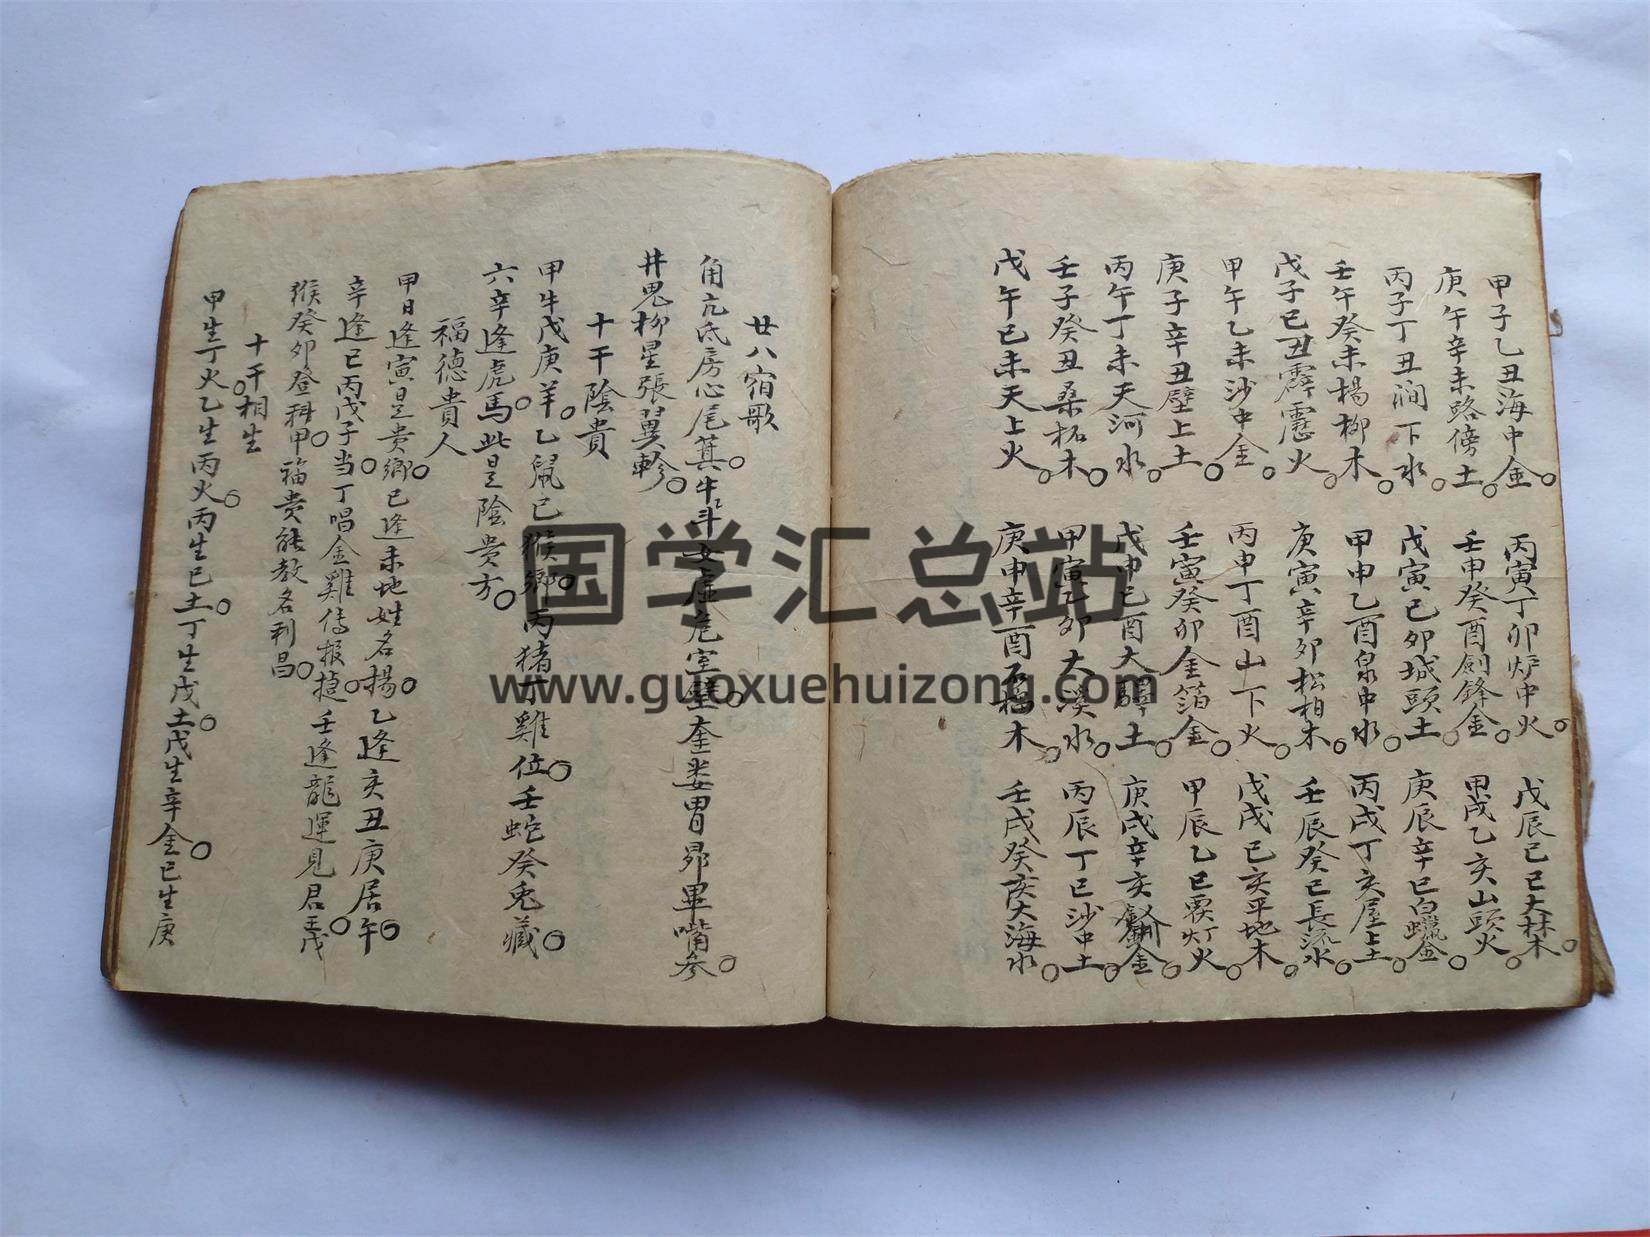 甲子乙丑海中金。丙寅丁卯炉中火。戊辰己巳大林木。
庚午辛未路傍土。壬申癸酉劍鋒金。甲戌乙亥山頭火。
丙子丁丑澗下水。戊寅己卯城頭土。庚辰辛巳白蠟金。
壬午癸未楊柳木。甲申乙酉泉中水。丙戌丁亥屋上土。
戊子己丑霹靂火。庚寅辛卯松柏木。壬辰癸巳長流水。
甲午乙未沙中金。丙申丁酉山下火。戊戌己亥平地木。
庚子辛丑壁上土。壬寅癸卯金箔金。甲辰乙巳覆灯火。
丙午丁未天河水。戊申己酉大驛土。庚戌辛亥釵釧金。
壬子癸丑桑柘木。甲寅乙卯大溪水。丙辰丁巳沙中土。
戊午己未天上火。庚申辛酉石榴木。壬戌癸亥大海水。
廿八宿歌
角亢氐房心尾箕。牛斗女虛危室壁。奎娄胃昴畢嘴参。
井鬼柳星張翼軫。
十干陰貴
甲牛戊庚羊。乙鼠己猴鄉。丙猪丁雞位。壬蛇癸兔藏。
六辛逢虎馬。此是陰贵方。
福德貴人
甲日逢寅是贵鄉。己逢未地姓名揚。乙逢亥丑庚居午。
辛逢巳丙戊子当。丁唱金雞傳报捷。壬逢龍運見君王。戊
猴癸卯登科甲。福贵能教名利昌。
十干相生
甲生丁火。乙生丙火。丙生己土。丁生戊土。戊生辛金。己生庚
国学汇总站
www.guoxuehuizong.com